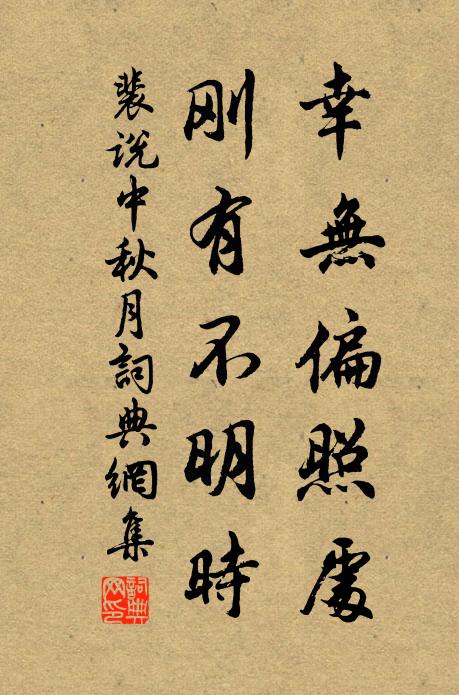 幸無偏照處
刚有不明時
裴说中秋月詞典網集
詞典网印